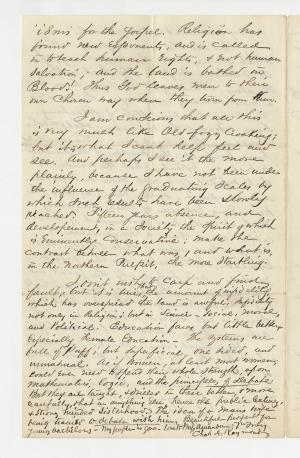 isms for the Gospel. Religion has
found new exponents, and is called
in to teach human rights, & not human
salvation; and the land is bathed in
Blood! Thus God leaves men to their
own chosen way when they turn from Him.
I am conscious that all this
is very much like Old fogy Croaking;
but it is what I cant help feel and
see. And perhaps I see it the more
plainly, because I have not been under
the influence of the graduating scales by
which such results have been slowly
reached. Fifteen years absence, and
development, in a Society the spirit of which
is eminently Conservative; make the
contrast between what was, and what is,
in the Northern Pulpit, the more startling.
I don't mean to carp and find
fault, but the amount of infidelity
which has overspread the land is awful. Infidelity
not only in Religion; but in Science - Social, moral,
and Political. Education fares but little better,
Especially Female Education - The systems are
full of Puff; but superficial, one sided, and
unnatural. As if women, at least most women,
could ever need to spend their whole strength, upon
Mathematics, Logic, and the principles of debate.
But they are taught, & drilled in these better, & more
carefully, than in anything else, hence the public
& strong minded Sisterhood. The idea of a man's wife
being trained to debate with him. Beautiful prospect for
young bachelors - My paper is gone.
Yr. Truly
Chas. A. Raymond